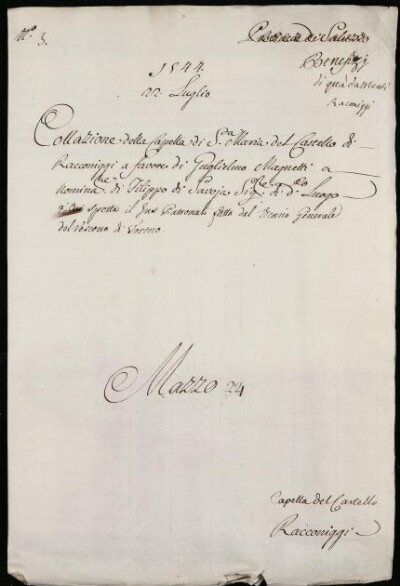 N.º 3.
Provincia di Saluzzo
Benefizj
di qua da Monti
Racconiggi
1544
22 Luglio
Collazione della Capella di S.ta Maria del Castello di
Racconiggi a favore di Guglielmo Magnetti a
nomina di Filippo di Savoja Sig.re di d.o Luogo
a cui spetta il Jus Patronato fatta dal Vicario Generale
del Vescovo di Torino.
Mazzo 24
Capella del Castello
Racconiggi